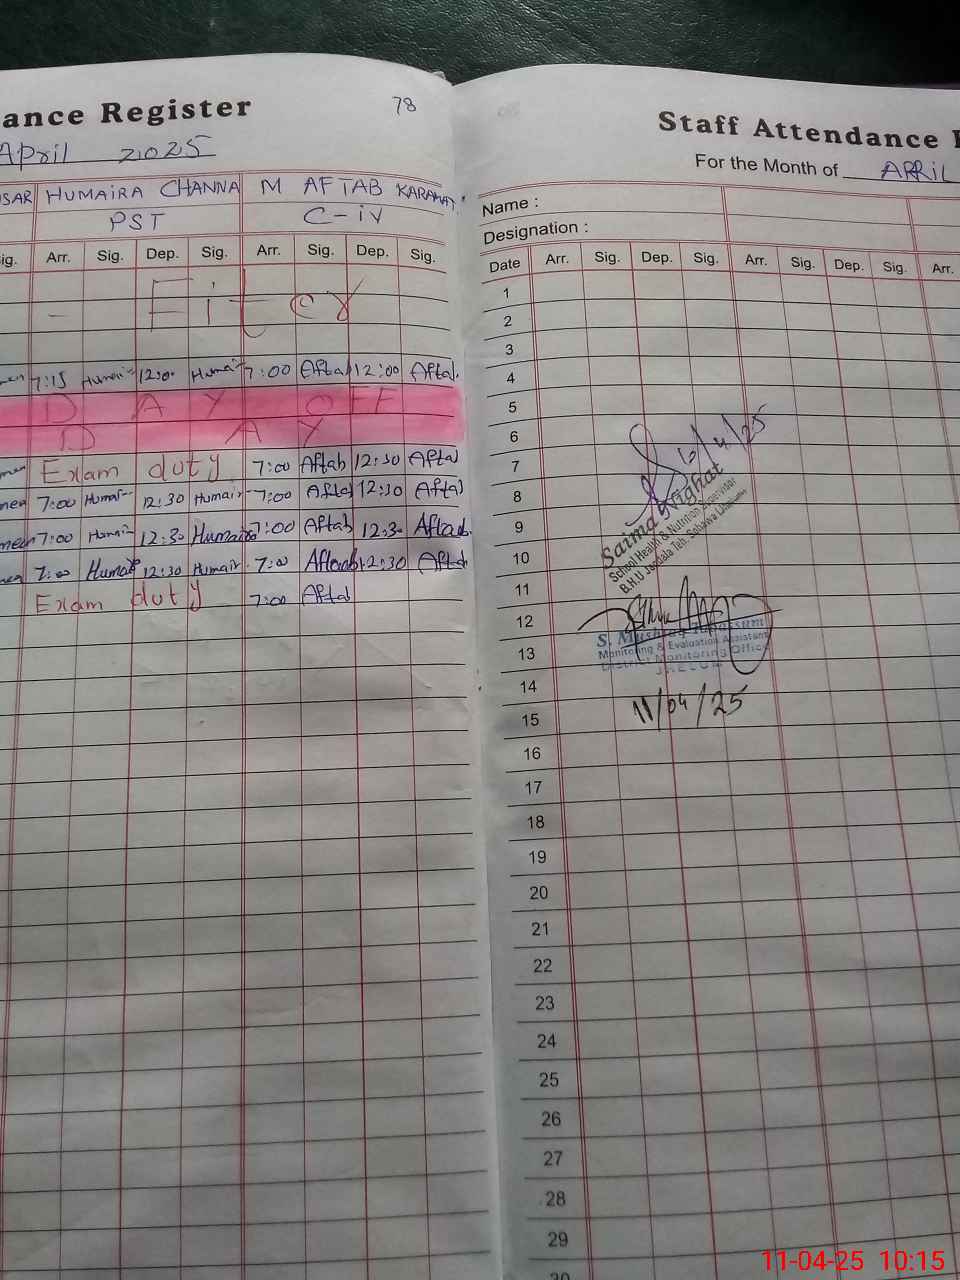 ance Register
78
April 2025
SAR HUMAIRA CHANNA M AFTAB KARAMAT
PST C-iv
ig. Arr. Sig. Dep. Sig. Arr. Sig. Dep. Sig.
- Eit
7:15 Humai 12:0 Humai 7:00 Aftab 12:00 Aftab
D A Y OFF
D A Y
Exam duty 7:00 Aftab 12:30 Afta
7:00 Humai 12:30 Humair 7:00 Aftab 12:30 Aftab
7:00 Humai 12:30 Humaira 7:00 Aftab 12:30 Aftab
7:00 Humair 12:30 Humair 7:00 Aftab 12:30 Aftab
Exam duty 7:00 Aftab
Staff Attendance
For the Month of APRIL
Name :
Designation :
Date Arr. Sig. Dep. Sig. Arr. Sig. Dep. Sig. Arr.
1
2
3
4
5
6
7
8
9
10
11
12
13
14
15
16
17
18
19
20
21
22
23
24
25
26
27
28
29
30
6/4/25
Saima Nighat
School Health & Nutrition Supervisor
B.H.U Jandala Teh. Sohawa
S. Mushtaq Tabassum
Monitoring & Evaluation Assistant
District Monitoring Office
JHELUM
11/04/25
11-04-25 10:15